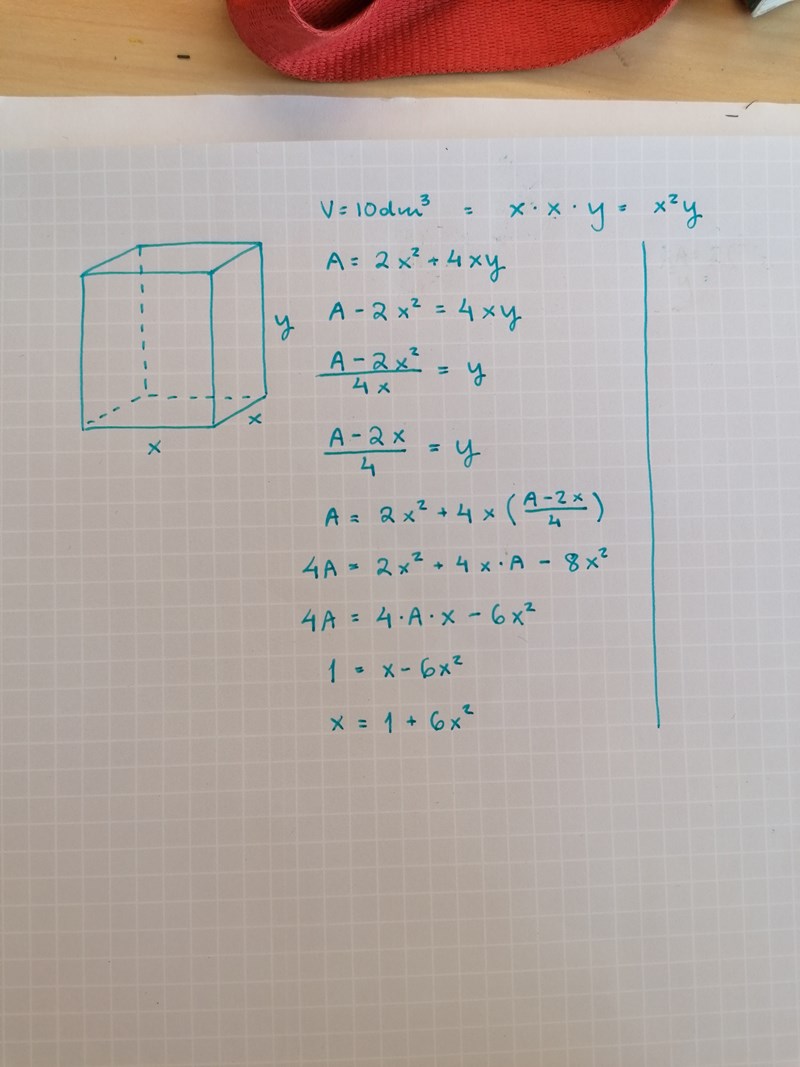 V = 10dm³ = x · x · y = x²y
A = 2x² + 4xy
A - 2x² = 4xy
(A - 2x²)/(4x) = y
(A - 2x)/4 = y
A = 2x² + 4x((A - 2x)/4)
4A = 2x² + 4x·A - 8x²
4A = 4·A·x - 6x²
1 = x - 6x²
x = 1 + 6x²
y
x
x